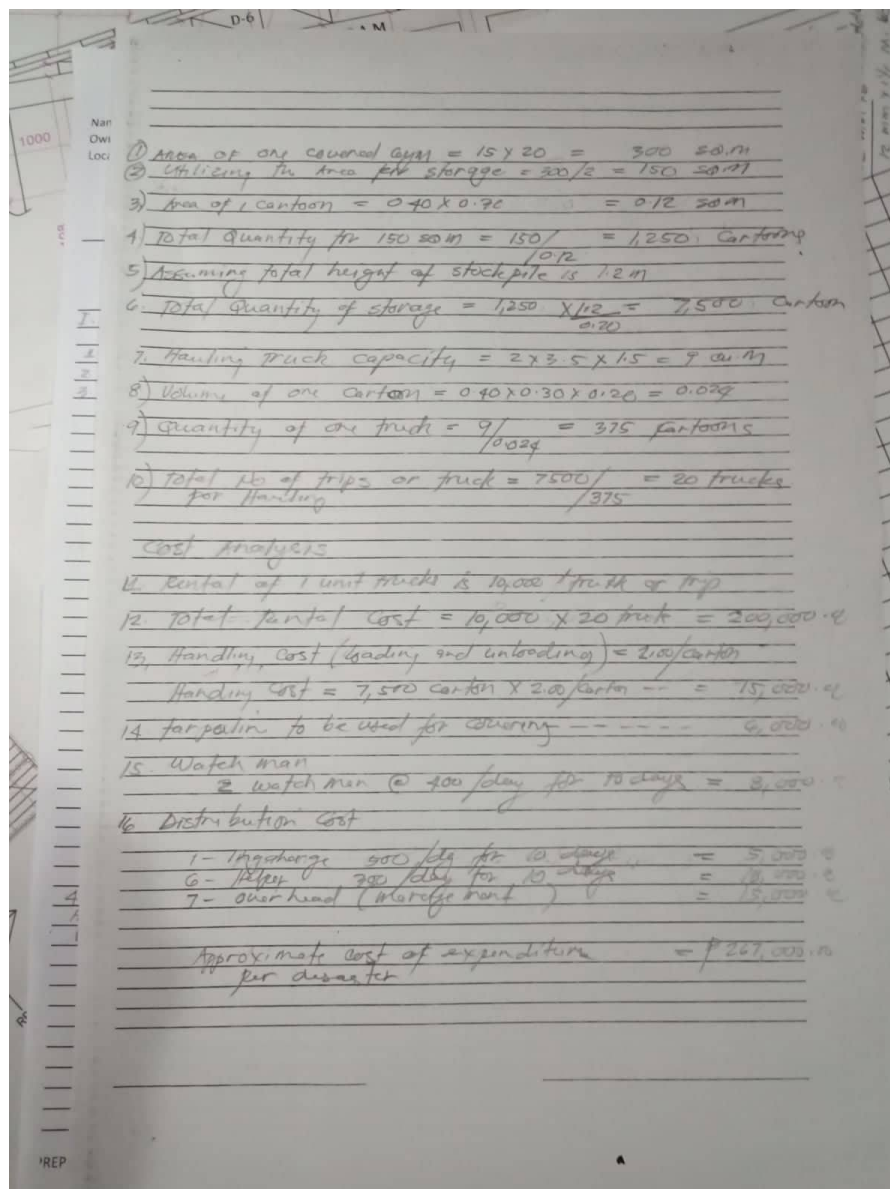 D-6
M
1000
Nan
Own
Loca
① Area of one covered Gym = 15 x 20 = 300 sq.m
② Utilizing the Area for storage = 300/2 = 150 sqm
3) Area of 1 cartoon = 0.40 x 0.30 = 0.12 sqm
4) Total Quantity for 150 sqm = 150/0.12 = 1,250 Cartoons
5) Assuming total height of stockpile is 1.2 m
6. Total Quantity of storage = 1,250 x 1.2/0.20 = 7,500 Cartoon
7. Hauling Truck capacity = 2 x 3.5 x 1.5 = 9 cu.m
8) Volume of one Cartoon = 0.40 x 0.30 x 0.20 = 0.024
9) Quantity of one truck = 9/0.024 = 375 Cartoons
10) Total No of trips or truck = 7500/375 = 20 trucks
for Handling
Cost Analysis
11. Rental of 1 unit trucks is 10,000 / truck or trip
12. Total Rental Cost = 10,000 x 20 truck = 200,000.
13, Handling Cost (loading and unloading) = 2.00/carton
Handing Cost = 7,500 carton x 2.00/carton -- = 15,000.
14 tarpaulin to be used for covering -----
15. Watch man
2 watch man @ 400 /day for 10 days = 8,000.
16 Distribution Cost
1 - Incharge 500 /dy for 10 days = 5,000
6 - Helper 300 /day for 10 days = 18,000
7 - over head ( ) = 15,000
Approximate cost of expenditure = ₱267,000.
per desaster
I.
1
2
3
4
PREP